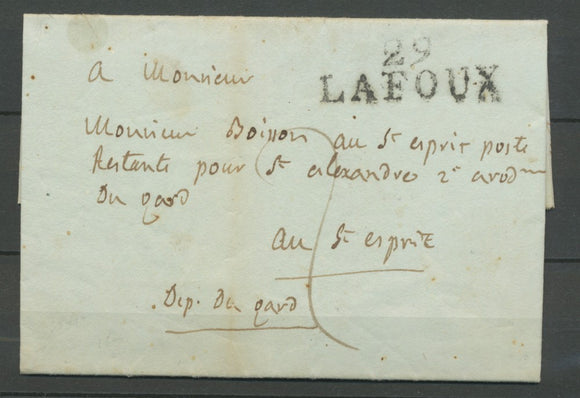 29
LAFOUX
A Monsieur
Monsieur Boisson au St esprit poste
Restante pour St alexandre 2e arodm
Du gard
au St esprit
Dep. Du gard